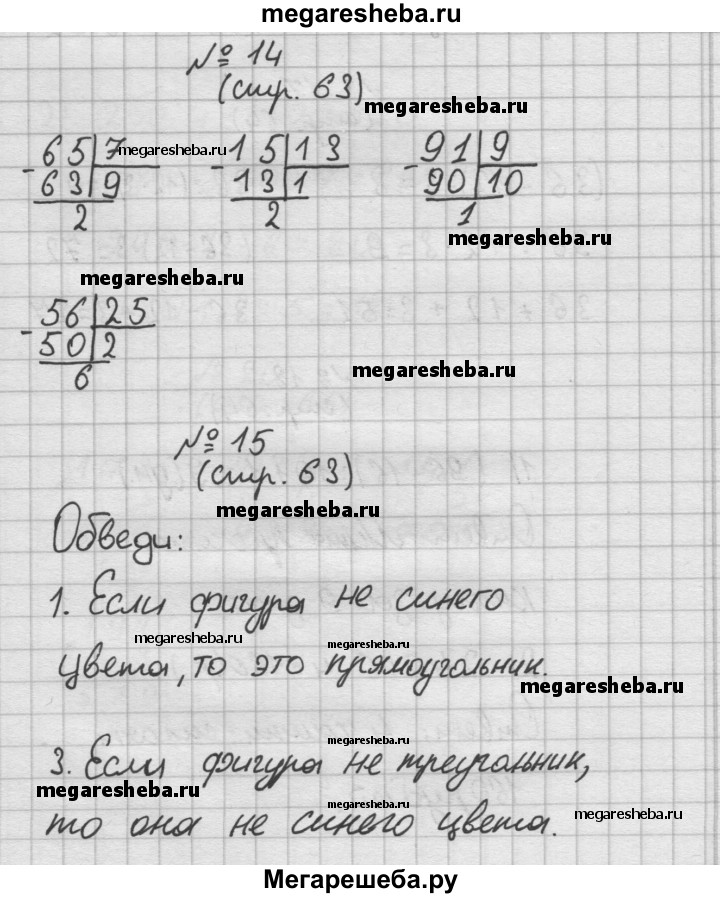 megaresheba.ru
№ 14
(стр. 63)
megaresheba.ru
- 65 | 7 megaresheba.ru - 15 | 13 - 91 | 9
63 | 9 13 | 1 90 | 10
2 2 1
megaresheba.ru
megaresheba.ru
- 56 | 25
50 | 2
6
megaresheba.ru
№ 15
(стр. 63)
megaresheba.ru
Обведи:
1. Если фигура не синего
megaresheba.ru megaresheba.ru
цвета, то это прямоугольник.
megaresheba.ru
megaresheba.ru
3. Если фигура не треугольник,
megaresheba.ru megaresheba.ru megaresheba.ru
то она не синего цвета.
Мегарешеба.ру